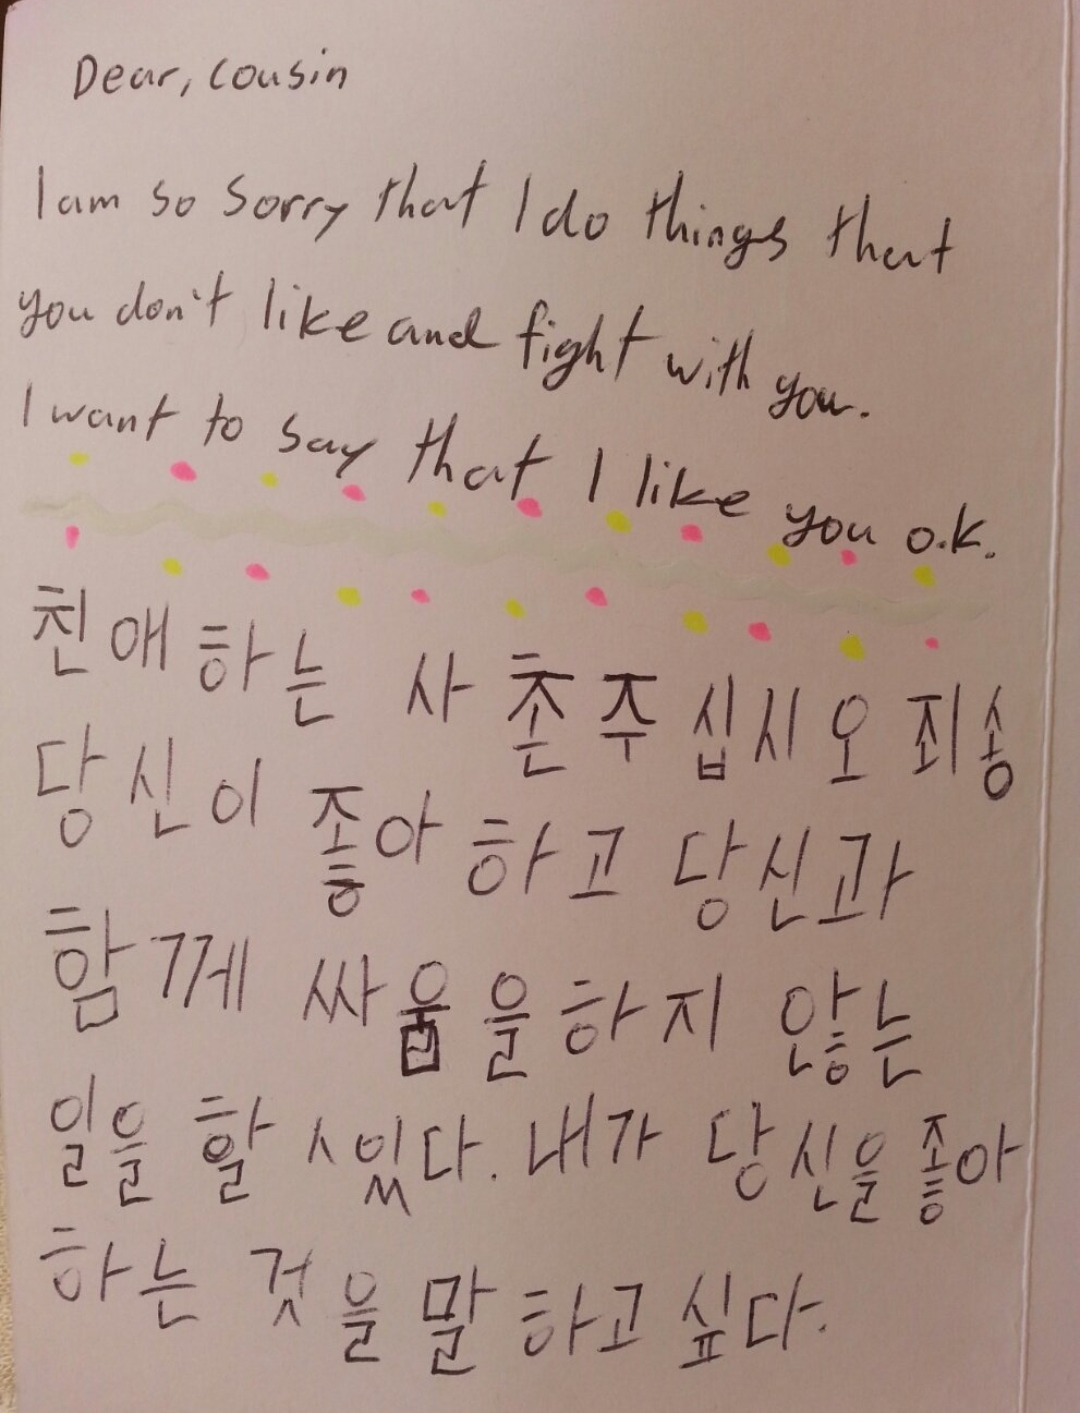 Dear, cousin
I am so sorry that I do things that
you don't like and fight with you.
I want to say that I like you o.k.
친애하는 사촌주십시오 죄송
당신이 좋아하고 당신과
함께 싸웁을하지 않는
일을 할 ㅅ있다. 내가 당신을 좋아
하는 것을 말하고 싶다.